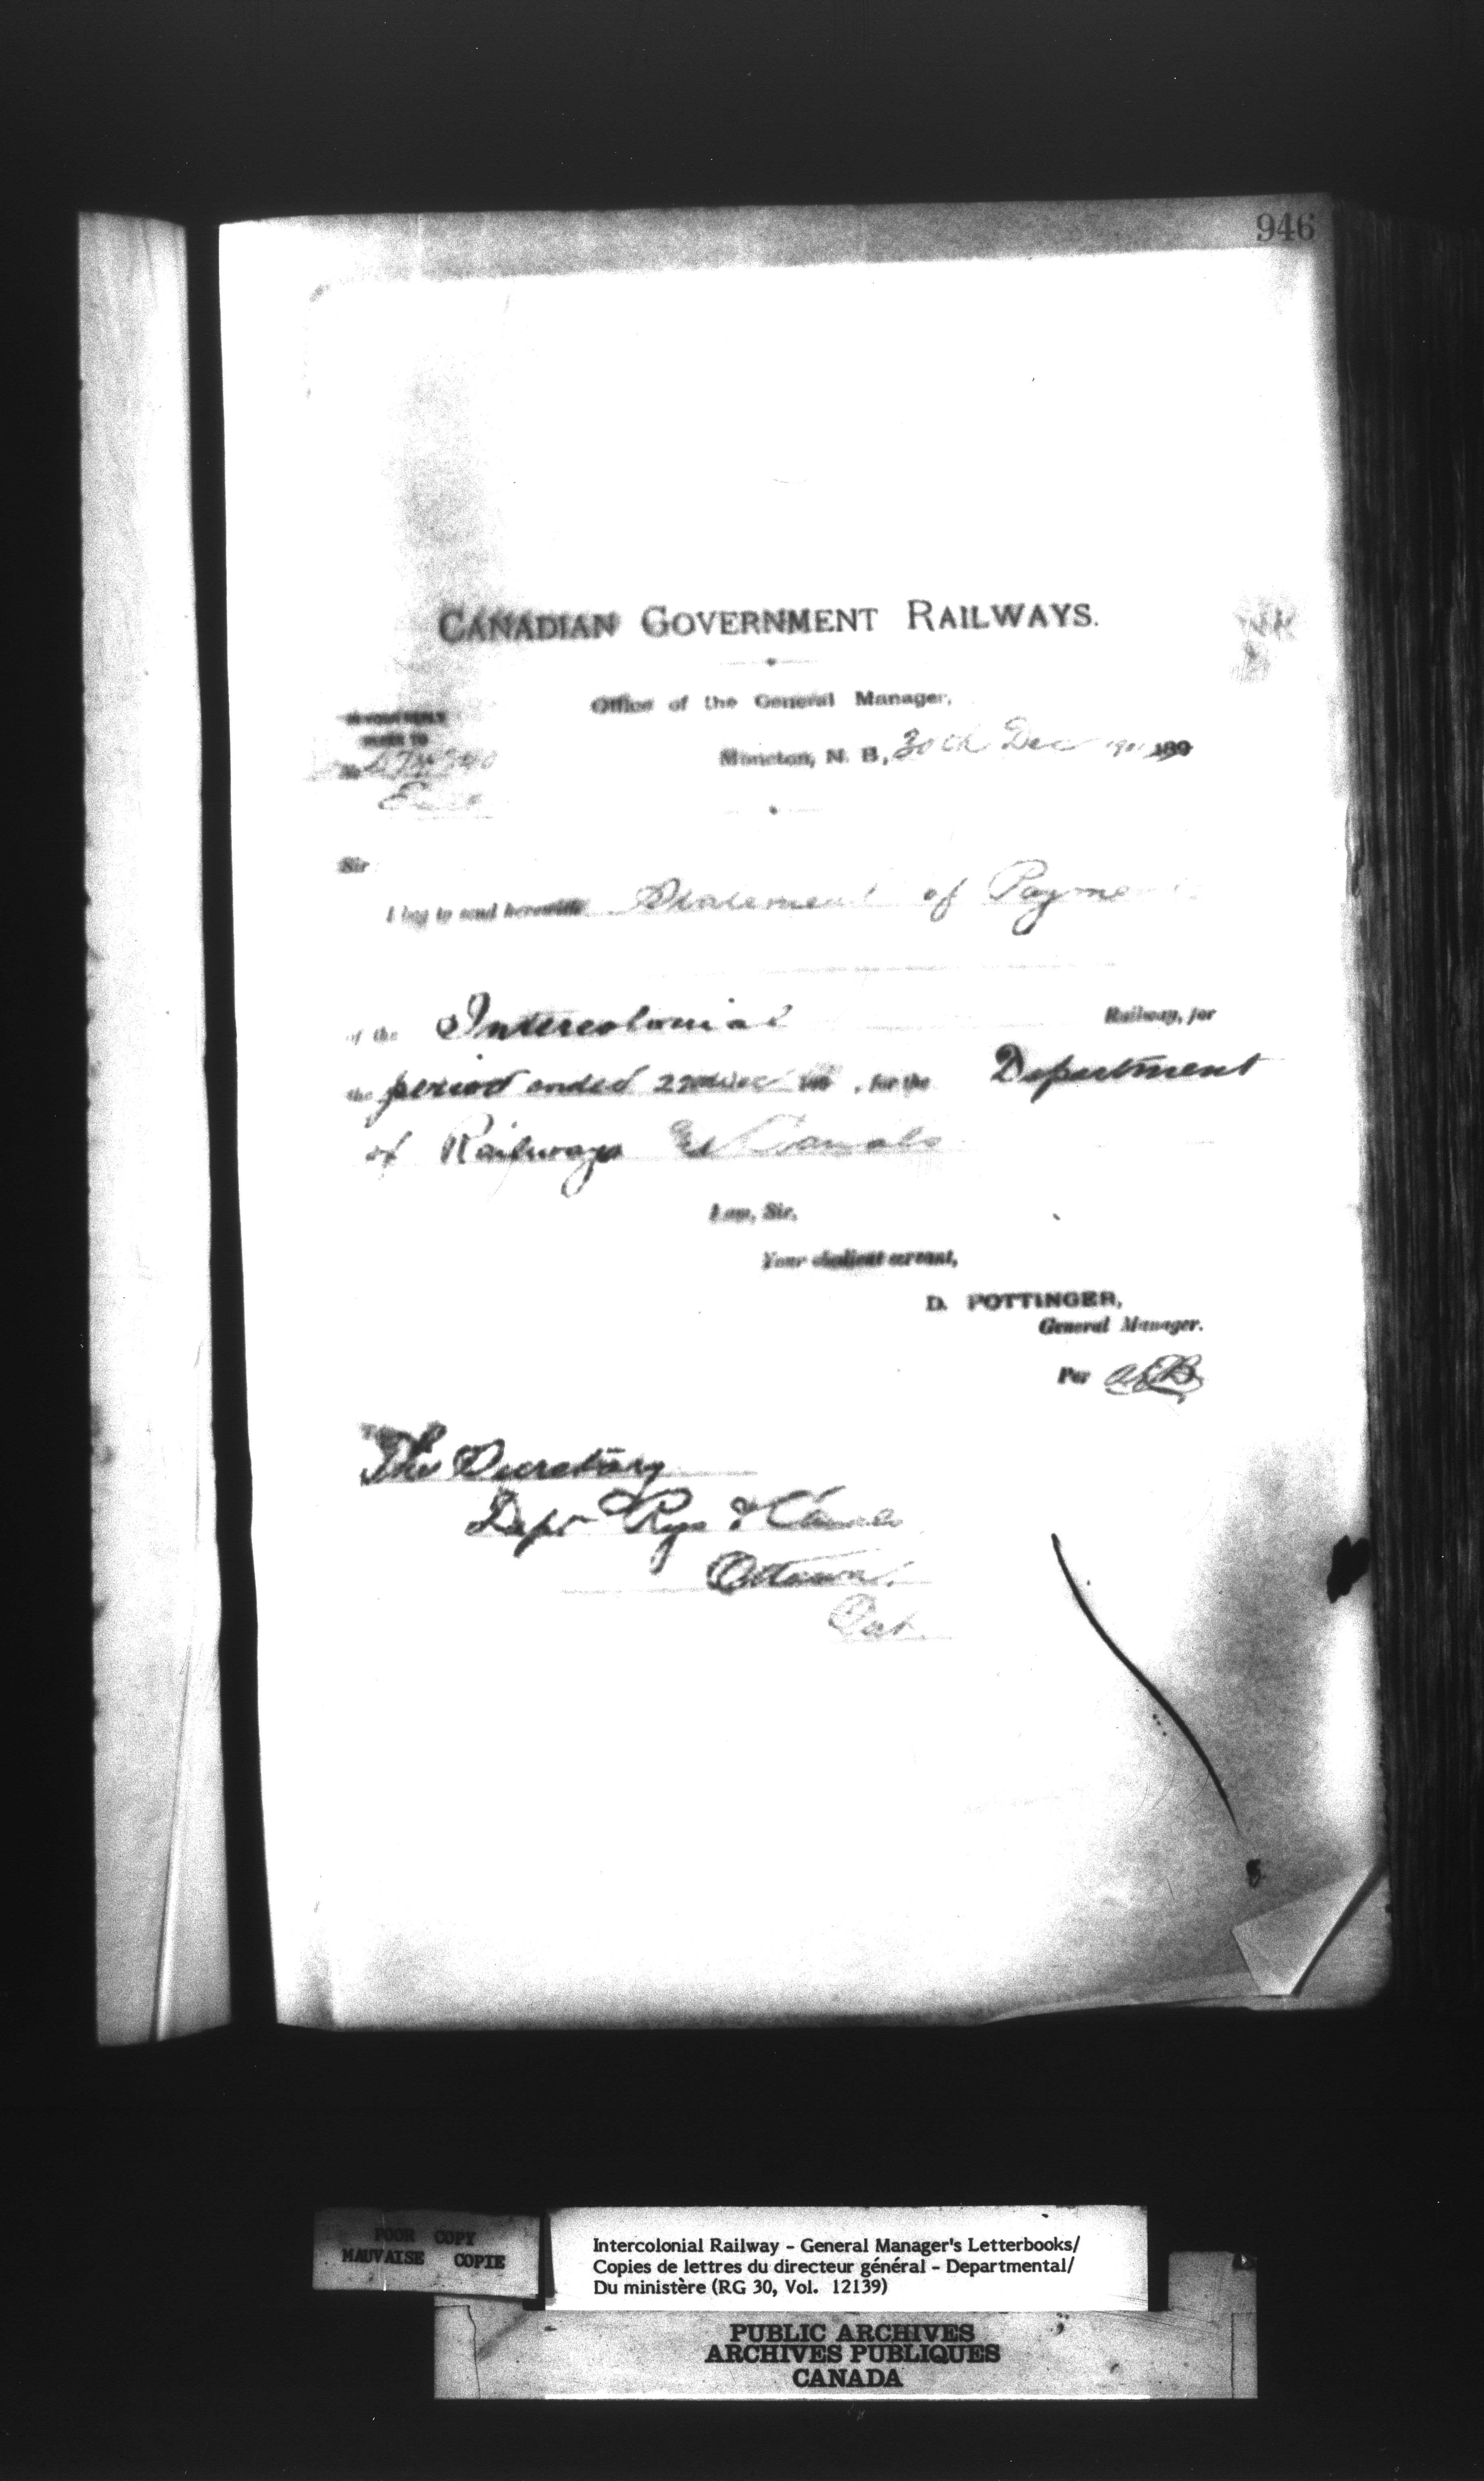 946
CANADIAN GOVERNMENT RAILWAYS.
Office of the General Manager,
IN YOUR REPLY
REFER TO
No
Moncton, N. B., 30th Dec 1901 189
Sir
I beg to send herewith Statement of Payment
of the Intercolonial Railway, for
the period ended 22nd Dec 189 , for the Department
of Railways & Canals
I am, Sir,
Your obedient servant,
D. POTTINGER,
General Manager.
Per
To
The Secretary
Dept Rys & Canals
Ottawa.
Ont.
POOR COPY
MAUVAISE COPIE
Intercolonial Railway - General Manager's Letterbooks/
Copies de lettres du directeur général - Departmental/
Du ministère (RG 30, Vol. 12139)
PUBLIC ARCHIVES
ARCHIVES PUBLIQUES
CANADA